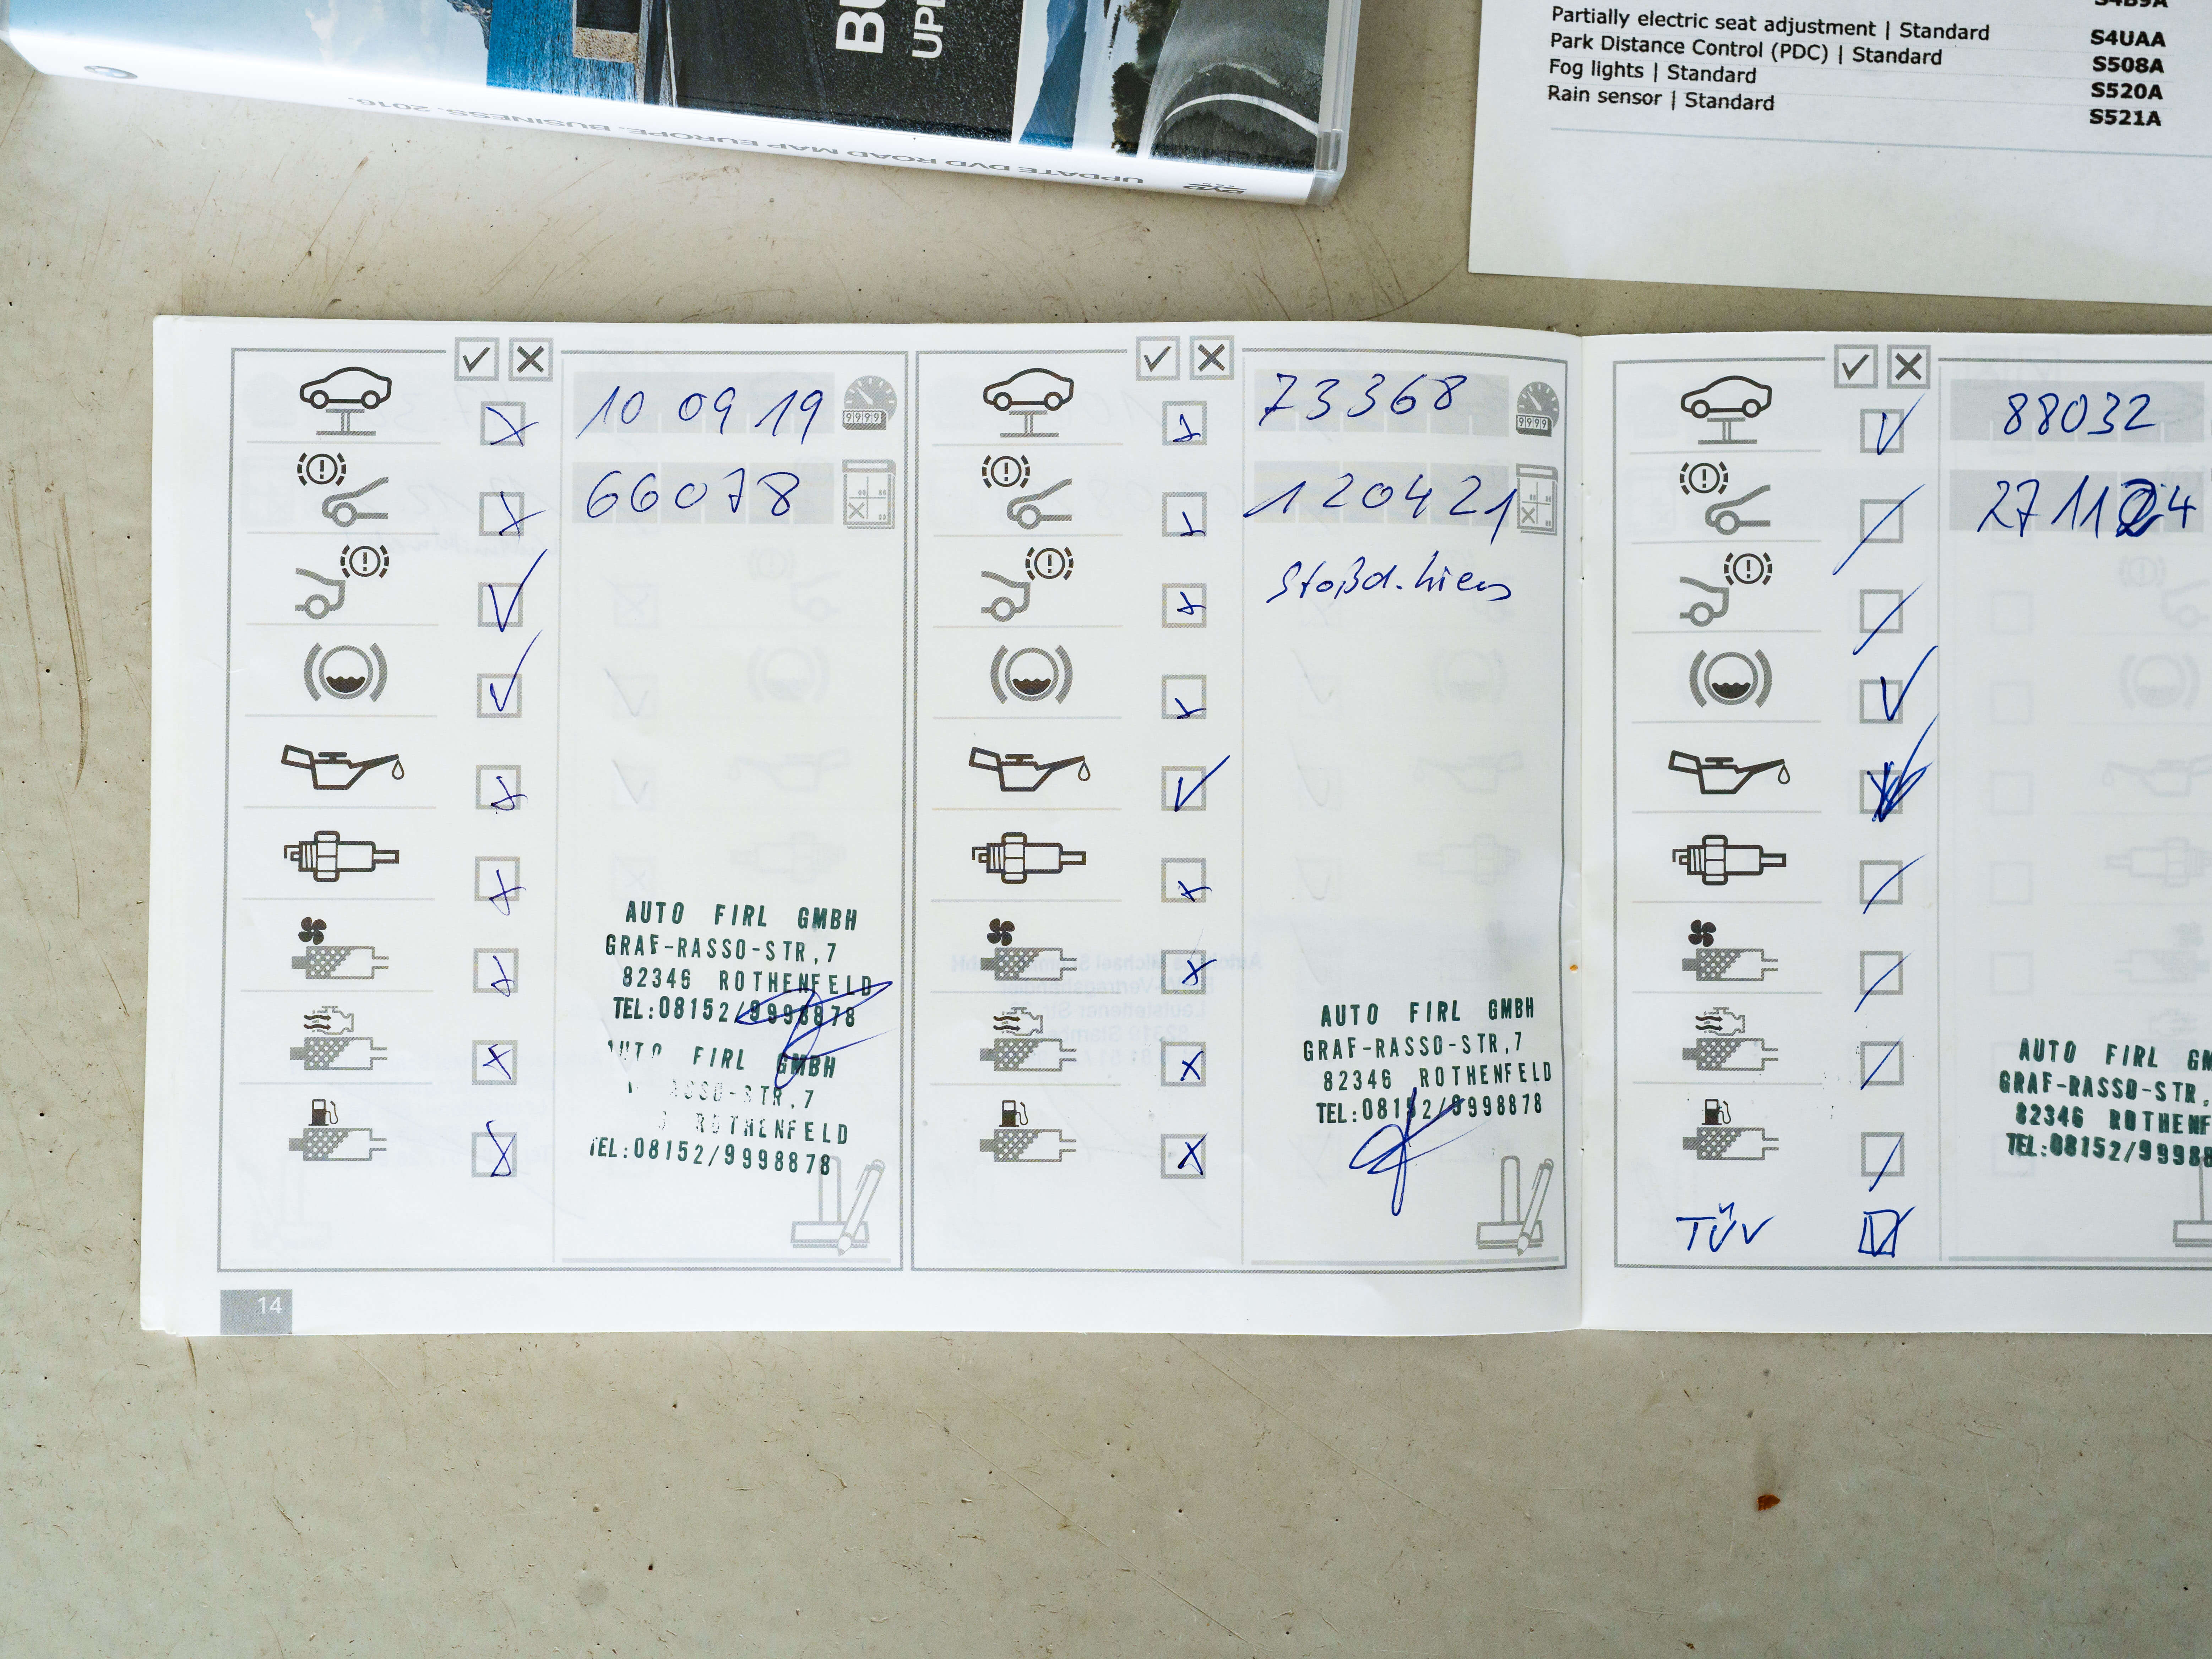 BU
UPD
UPDATE DVD ROAD MAP EUROPE. BUSINESS. 2016.
S4B9A
Partially electric seat adjustment | Standard S4UAA
Park Distance Control (PDC) | Standard S508A
Fog lights | Standard S520A
Rain sensor | Standard S521A
10 09 19
9999
66078
AUTO FIRL GMBH
GRAF-RASSO-STR,7
82346 ROTHENFELD
TEL:08152/9998878
FIRL GMBH
ASSO-STR,7
ROTHENFELD
TEL:08152/9998878
14
73368
9999
120421
Stoßd. hien
AUTO FIRL GMBH
GRAF-RASSO-STR,7
82346 ROTHENFELD
TEL:08152/9998878
88032
271124
AUTO FIRL GM
GRAF-RASSO-STR,
82346 ROTHENF
TEL:08152/99988
TÜV